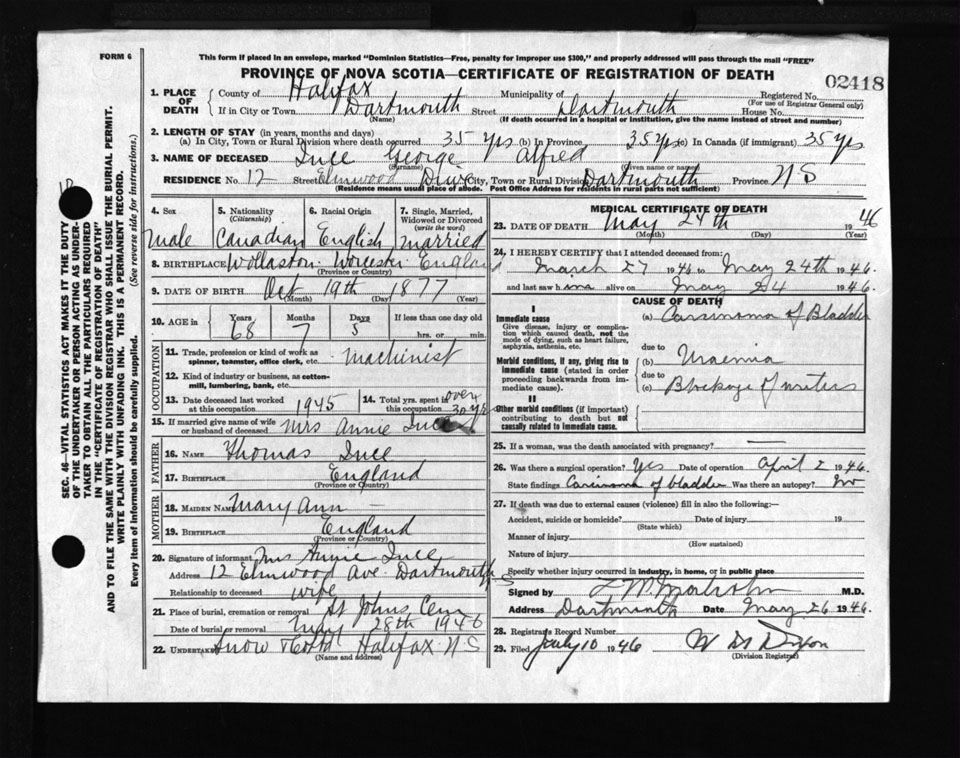 FORM 6
This form if placed in an envelope, marked "Dominion Statistics—Free, penalty for improper use $300," and properly addressed will pass through the mail "FREE"
PROVINCE OF NOVA SCOTIA—CERTIFICATE OF REGISTRATION OF DEATH
02418
1. PLACE OF DEATH
County of Halifax Municipality of Registered No.
(For use of Registrar General only)
If in City or Town Dartmouth Street Dartmouth House No.
(Name) (If death occurred in a hospital or institution, give the name instead of street and number)
2. LENGTH OF STAY (in years, months and days)
(a) In City, Town or Rural Division where death occurred 35 yrs (b) In Province 35 yrs (c) In Canada (if immigrant) 35 yrs
3. NAME OF DECEASED Luce George Alfred
(Surname) (Given name or names)
RESIDENCE No. 12 Street Elmwood City, Town or Rural Division Dartmouth Province N S
(Residence means usual place of abode. Post Office Address for residents in rural parts not sufficient)
4. Sex
male
5. Nationality
(Citizenship)
Canadian
6. Racial Origin
English
7. Single, Married, Widowed or Divorced
(write the word)
married
8. BIRTHPLACE Wollaston Worcester England
(Province or Country)
9. DATE OF BIRTH Oct 19th 1877
(Month) (Day) (Year)
10. AGE in
Years Months Days If less than one day old
68 7 5 hrs. or min.
OCCUPATION
11. Trade, profession or kind of work as spinner, teamster, office clerk, etc. Machinist
12. Kind of industry or business, as cotton-mill, lumbering, bank, etc.
13. Date deceased last worked at this occupation 1945
14. Total yrs. spent in this occupation over 30 yrs
15. If married give name of wife or husband of deceased Mrs Annie Luce
FATHER
16. NAME Thomas Luce
17. BIRTHPLACE England
(Province or Country)
MOTHER
18. MAIDEN NAME Mary Ann —
19. BIRTHPLACE England
(Province or Country)
20. Signature of informant Mrs Annie Luce
Address 12 Elmwood Ave Dartmouth N S
Relationship to deceased wife
21. Place of burial, cremation or removal St Johns Cem
Date of burial or removal May 28th 1946
22. UNDERTAKER Snow Halifax N S
(Name and address)
MEDICAL CERTIFICATE OF DEATH
23. DATE OF DEATH May 24th 1946
(Month) (Day) (Year)
24. I HEREBY CERTIFY that I attended deceased from:
March 27 1946 to May 24th 1946.
and last saw him alive on May 24 1946.
CAUSE OF DEATH
I
Immediate cause
Give disease, injury or complication which caused death, not the mode of dying, such as heart failure, asphyxia, asthenia, etc.
(a) Carcinoma of Bladder
due to
Morbid conditions, if any, giving rise to immediate cause (stated in order proceeding backwards from immediate cause).
(b) Uraemia
due to
(c) Blockage of ureters
II
Other morbid conditions (if important) contributing to death but not causally related to immediate cause.
25. If a woman, was the death associated with pregnancy? —
26. Was there a surgical operation? Yes Date of operation April 2 1946.
State findings Carcinoma of bladder Was there an autopsy? No
27. If death was due to external causes (violence) fill in also the following:—
Accident, suicide or homicide? Date of injury 19
(State which)
Manner of injury
(How sustained)
Nature of injury
Specify whether injury occurred in industry, in home, or in public place
Signed by M.D.
Address Dartmouth Date May 26 1946.
28. Registrar's Record Number
29. Filed July 10 1946
(Division Registrar)
SEC. 46—VITAL STATISTICS ACT MAKES IT THE DUTY
OF THE UNDERTAKER OR PERSON ACTING AS UNDERTAKER TO OBTAIN ALL THE PARTICULARS REQUIRED
IN THE "CERTIFICATE OF REGISTRATION OF DEATH"
AND TO FILE THE SAME WITH THE DIVISION REGISTRAR WHO SHALL ISSUE THE BURIAL PERMIT.
WRITE PLAINLY WITH UNFADING INK. THIS IS A PERMANENT RECORD.
Every item of information should be carefully supplied. (See reverse side for instructions.)